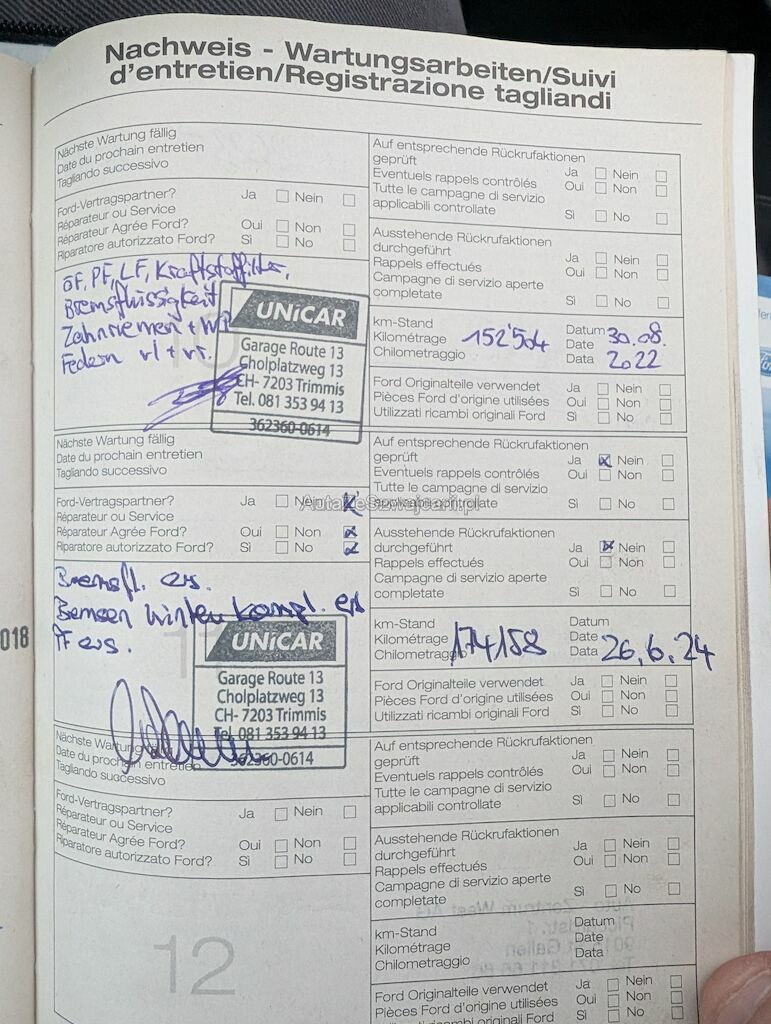 Nachweis - Wartungsarbeiten/Suivi
d'entretien/Registrazione tagliandi
Nächste Wartung fällig
Date du prochain entretien
Tagliando successivo
Ford-Vertragspartner? Ja Nein
Réparateur ou Service
Réparateur Agrée Ford? Oui Non
Riparatore autorizzato Ford? Sì No
ÖF, PF, LF, Kraftstofffilter,
Bremsflüssigkeit
Zahnriemen +
Federn vl + vr.
UNiCAR
Garage Route 13
Cholplatzweg 13
CH- 7203 Trimmis
Tel. 081 353 94 13
362360-0614
Auf entsprechende Rückrufaktionen
geprüft Ja Nein
Eventuels rappels contrôlés Oui Non
Tutte le campagne di servizio
applicabili controllate Sì No
Ausstehende Rückrufaktionen
durchgeführt Ja Nein
Rappels effectués Oui Non
Campagne di servizio aperte
completate Sì No
km-Stand Datum
Kilométrage 152'504 Date 30.08.
Chilometraggio Data 2022
Ford Originalteile verwendet Ja Nein
Pièces Ford d'origine utilisées Oui Non
Utilizzati ricambi originali Ford Sì No
Nächste Wartung fällig
Date du prochain entretien
Tagliando successivo
Ford-Vertragspartner? Ja Nein
Réparateur ou Service
Réparateur Agrée Ford? Oui Non
Riparatore autorizzato Ford? Sì No
Bremsfl. ers.
Bemsen hinten kompl. ers
PF ers.
UNiCAR
Garage Route 13
Cholplatzweg 13
CH- 7203 Trimmis
Tel. 081 353 94 13
362360-0614
Auf entsprechende Rückrufaktionen
geprüft Ja Nein
Eventuels rappels contrôlés Oui Non
Tutte le campagne di servizio
applicabili controllate Sì No
AutazeSzwajcarii.pl
Ausstehende Rückrufaktionen
durchgeführt Ja Nein
Rappels effectués Oui Non
Campagne di servizio aperte
completate Sì No
km-Stand Datum
Kilométrage 174158 Date
Chilometraggio Data 26.6.24
Ford Originalteile verwendet Ja Nein
Pièces Ford d'origine utilisées Oui Non
Utilizzati ricambi originali Ford Sì No
018
Nächste Wartung fällig
Date du prochain entretien
Tagliando successivo
Ford-Vertragspartner? Ja Nein
Réparateur ou Service
Réparateur Agrée Ford? Oui Non
Riparatore autorizzato Ford? Sì No
12
Auf entsprechende Rückrufaktionen
geprüft Ja Nein
Eventuels rappels contrôlés Oui Non
Tutte le campagne di servizio
applicabili controllate Sì No
Ausstehende Rückrufaktionen
durchgeführt Ja Nein
Rappels effectués Oui Non
Campagne di servizio aperte
completate Sì No
km-Stand Datum
Kilométrage Date
Chilometraggio Data
Ford Originalteile verwendet Ja Nein
Pièces Ford d'origine utilisées Oui Non
Utilizzati ricambi originali Ford Sì No